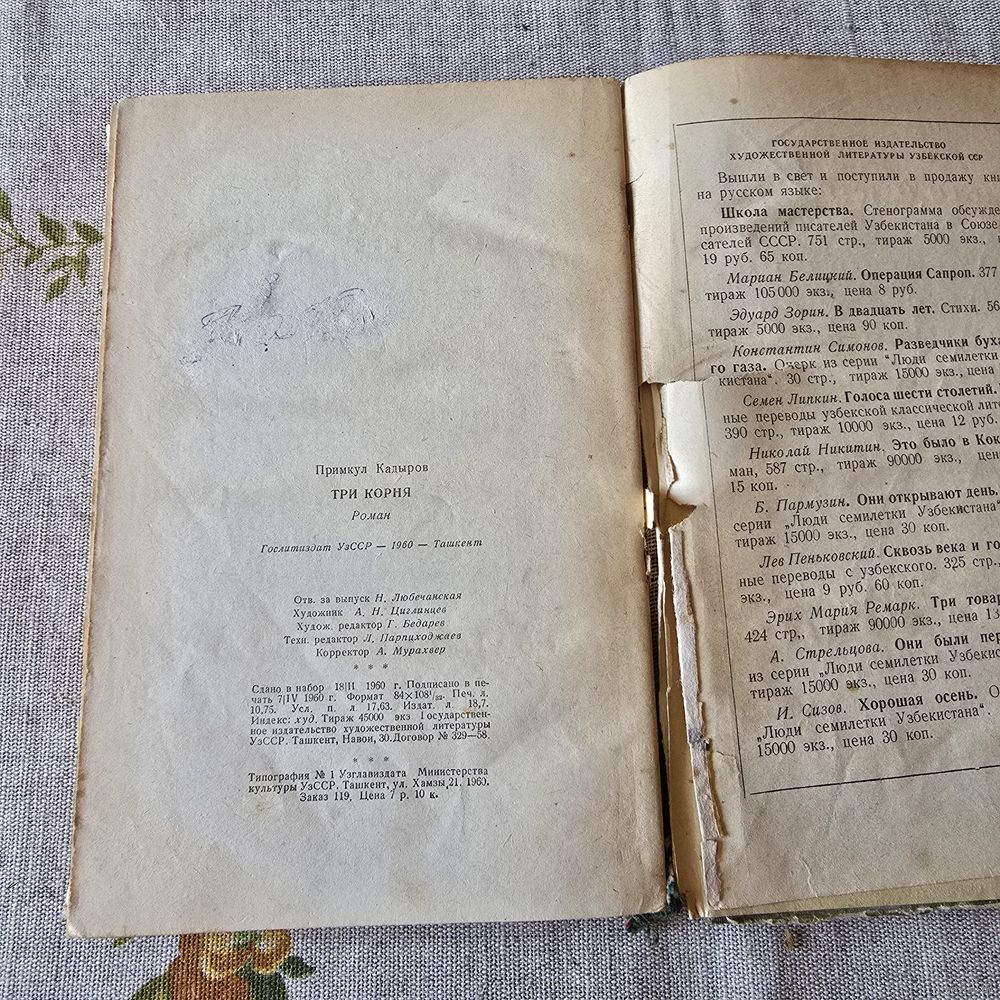 Примкул Кадыров
ТРИ КОРНЯ
Роман
Гослитиздат УзССР — 1960 — Ташкент
Отв. за выпуск Н. Любечанская
Художник А. Н. Циглинцев
Худож. редактор Г. Бедарев
Техн. редактор Л. Парпиходжаев
Корректор А. Мурахвер
* * *
Сдано в набор 18|II 1960 г. Подписано в пе-
чать 7|IV 1960 г. Формат 84×108¹/₃₂. Печ. л.
10.75. Усл. п. л 17,63. Издат. л. 18,7.
Индекс: худ, Тираж 45000 экз Государствен-
ное издательство художественной литературы
УзССР. Ташкент, Навои, 30. Договор № 329—58.
* * *
Типография № 1 Узглавиздата Министерства
культуры УзССР. Ташкент, ул. Хамзы, 21. 1960.
Заказ 119, Цена 7 р. 10 к.
ГОСУДАРСТВЕННОЕ ИЗДАТЕЛЬСТВО
ХУДОЖЕСТВЕННОЙ ЛИТЕРАТУРЫ УЗБЕКСКОЙ ССР
Вышли в свет и поступили в продажу кни
на русском языке:
Школа мастерства. Стенограмма обсужде
произведений писателей Узбекистана в Союзе
сателей СССР. 751 стр., тираж 5000 экз.,
19 руб. 65 коп.
Мариан Белицкий. Операция Сапроп. 377
тираж 105 000 экз., цена 8 руб.
Эдуард Зорин. В двадцать лет. Стихи. 56
тираж 5000 экз., цена 90 коп.
Константин Симонов. Разведчики буха
го газа. Очерк из серии "Люди семилетки
кистана". 30 стр., тираж 15000 экз., цена
Семен Липкин. Голоса шести столетий.
ные переводы узбекской классической лите
390 стр., тираж 10000 экз., цена 12 руб.
Николай Никитин. Это было в Кок
ман, 587 стр., тираж 90000 экз., цен
15 коп.
Б. Пармузин. Они открывают день.
серии „Люди семилетки Узбекистана"
тираж 15000 экз., цена 30 коп.
Лев Пеньковский. Сквозь века и го
ные переводы с узбекского. 325 стр.,
экз., цена 9 руб. 60 коп.
Эрих Мария Ремарк. Три товар
424 стр,, тираж 90000 экз., цена 13
А. Стрельцова. Они были пер
из серии „Люди семилетки Узбекис
тираж 15000 экз., цена 30 коп.
И. Сизов. Хорошая осень. О
„Люди семилетки Узбекистана".
15000 экз., цена 30 коп.